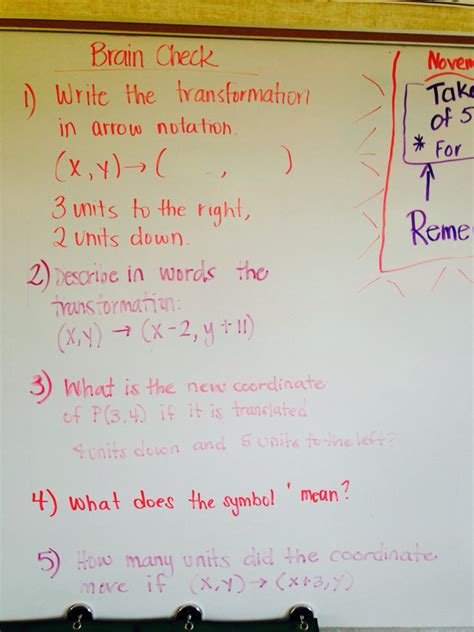 Brain Check
1) Write the transformation
in arrow notation.
(x,y)→( , )
3 units to the right,
2 units down.
2) Describe in words the
transformation:
(x,y) → (x-2, y+11)
3) What is the new coordinate
of P(3,4) if it is translated
4 units down and 5 units to the left?
4) What does the symbol ' mean?
5) How many units did the coordinate
move if (x,y)→(x+3,y)
Novem
Take
of 5
* For
Reme